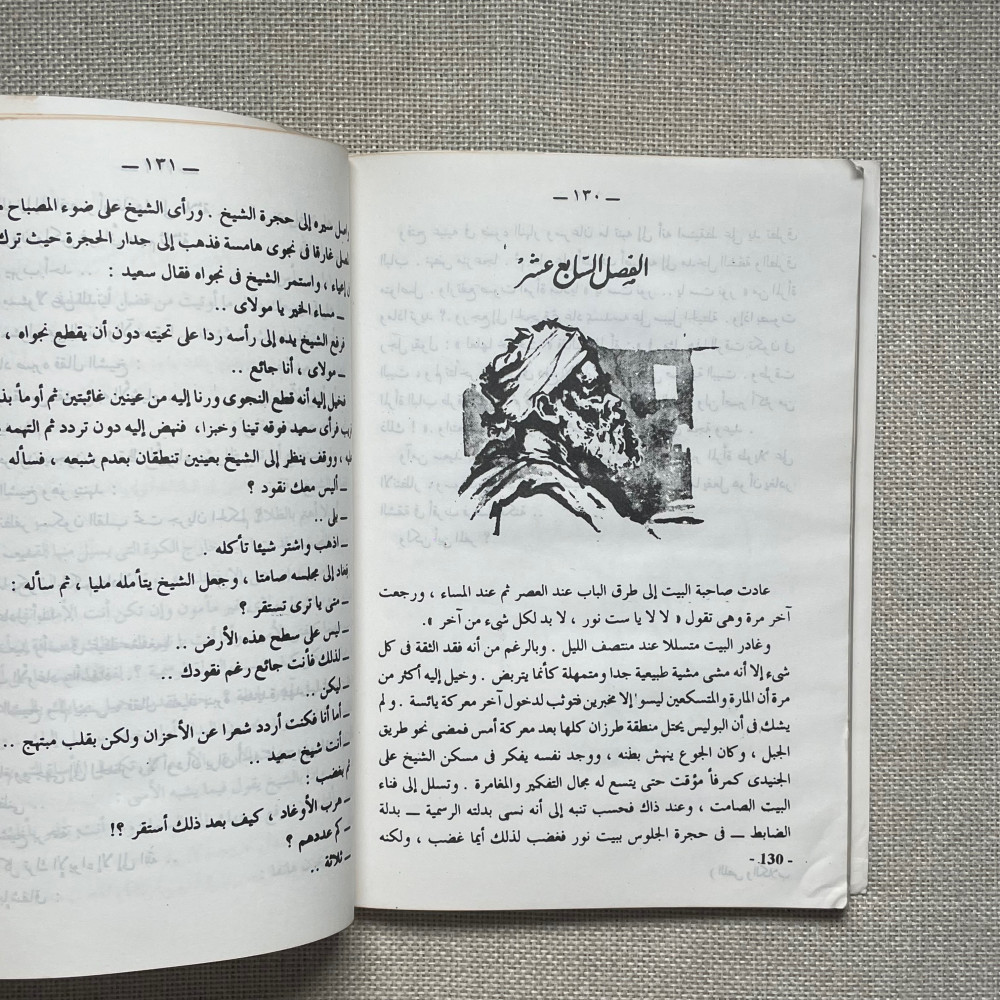 — ١٣٠ —
الفصل السابع عشر
عادت صاحبة البيت إلى طرق الباب عند العصر ثم عند المساء ، ورجعت
آخر مرة وهى تقول « لا لا يا ست نور ، لا بد لكل شىء من آخر ».
وغادر البيت متسللا عند منتصف الليل . وبالرغم من أنه فقد الثقة فى كل
شىء إلا أنه مشى مشية طبيعية جدا ومتمهلة كأنما يتريض . وخيل إليه أكثر من
مرة أن المارة والمتسكعين ليسو إلا مخبرين فتوثب لدخول آخر معركة يائسة . ولم
يشك فى أن البوليس يحتل منطقة طرزان كلها بعد معركة أمس فمضى نحو طريق
الجبل ، وكان الجوع ينهش بطنه ، ووجد نفسه يفكر فى مسكن الشيخ على
الجنيدى كمرفأ مؤقت حتى يتسع له مجال التفكير والمغامرة . وتسلل إلى فناء
البيت الصامت ، وعند ذاك فحسب تنبه إلى أنه نسى بدلته الرسمية — بدلة
الضابط — فى حجرة الجلوس ببيت نور فغضب لذلك أيما غضب ، ولكنه
- 130 -
— ١٣١ —
سيره إلى حجرة الشيخ . ورأى الشيخ على ضوء المصباح
غارقا فى نجوى هامسة فذهب إلى جدار الحجرة حيث ترك
إعياء ، واستمر الشيخ فى نجواه فقال سعيد :
ـ مساء الخير يا مولاى ..
فرفع الشيخ يده إلى رأسه ردا على تحيته دون أن يقطع نجواه ،
ـ مولاى ، أنا جائع ..
فخيل إليه أنه قطع النجوى ورنا إليه من عينين غائبتين ثم أومأ
فرأى سعيد فوقه تينا وخبزا ، فنهض إليه دون تردد ثم التهمه
، ووقف ينظر إلى الشيخ بعينين تنطقان بعدم شبعه ، فسأله
ـ أليس معك نقود ؟
ـ بلى ..
ـ اذهب واشتر شيئا تأكله .
فعاد إلى مجلسه صامتا ، وجعل الشيخ يتأمله مليا ، ثم سأله :
ـ متى يا ترى تستقر ؟
ـ ليس على سطح هذه الأرض ..
ـ لذلك فأنت جائع رغم نقودك ..
ـ ليكن ..!
ـ أما أنا فكنت أردد شعرا عن الأحزان ولكن بقلب مبتهج ..
ـ أنت شيخ سعيد ..
ثم بغضب :
ـ هرب الأوغاد ، كيف بعد ذلك أستقر ؟!
ـ كم عددهم ؟
ـ ثلاثة ..